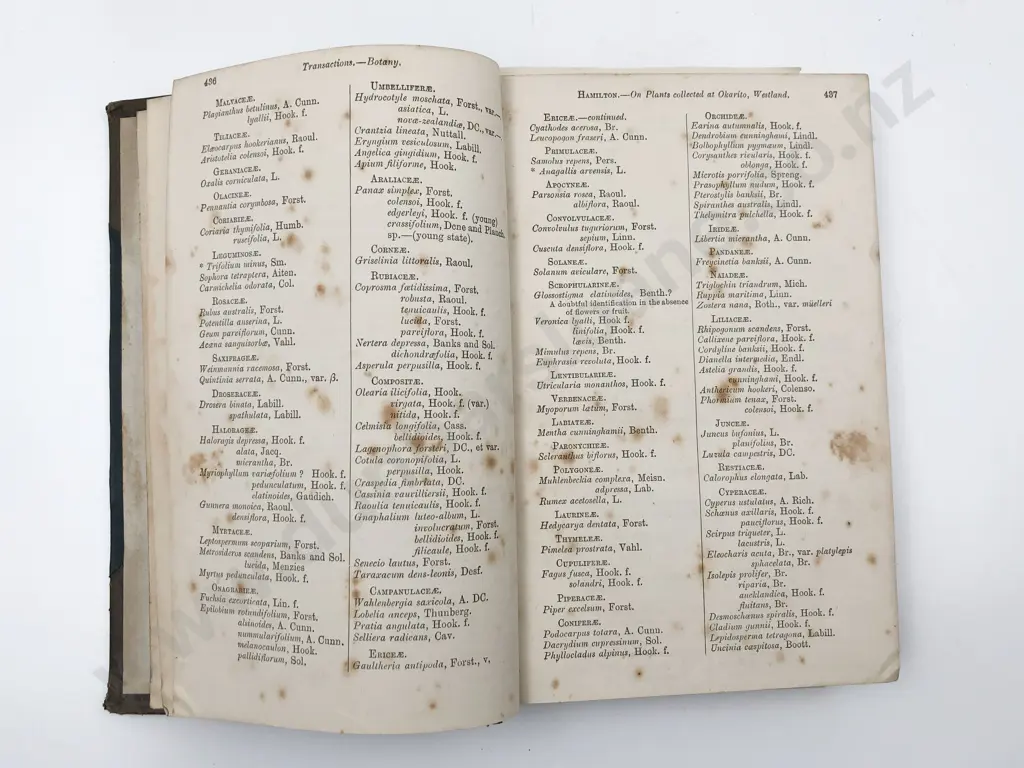 436
Transactions.—Botany.
MALVACEÆ.
Plagianthus betulinus, A. Cunn.
lyallii, Hook. f.
TILIACEÆ.
Elæocarpus hookerianus, Raoul.
Aristotelia colensoi, Hook. f.
GERANIACEÆ.
Oxalis corniculata, L.
OLACINEÆ.
Pennantia corymbosa, Forst.
CORIARIEÆ.
Coriaria thymifolia, Humb.
ruscifolia, L.
LEGUMINOSÆ.
* Trifolium minus, Sm.
Sophora tetraptera, Aiten.
Carmichelia odorata, Col.
ROSACEÆ.
Rubus australis, Forst.
Potentilla anserina, L.
Geum parviflorum, Cunn.
Acæna sanguisorbæ, Vahl.
SAXIFRAGEÆ.
Weinmannia racemosa, Forst.
Quintinia serrata, A. Cunn., var. β.
DROSERACEÆ.
Drosera binata, Labill.
spathulata, Labill.
HALORAGEÆ.
Halorogis depressa, Hook. f.
alata, Jacq.
micrantha, Br.
Myriophyllum variæfolium ? Hook. f.
pedunculatum, Hook. f.
elatinoides, Gaudich.
Gunnera monoica, Raoul.
densiflora, Hook. f.
MYRTACEÆ.
Leptospermum scoparium, Forst.
Metrosideros scandens, Banks and Sol.
lucida, Menzies
Myrtus pedunculata, Hook. f.
ONAGRARIEÆ.
Fuchsia excorticata, Lin. f.
Epilobium rotundifolium, Forst.
alsinoides, A. Cunn.
nummularifolium, A. Cunn.
melanocaulon, Hook.
pallidiflorum, Sol.
UMBELLIFERÆ.
Hydrocotyle moschata, Forst., var.
asiatica, L.
novæ-zealandiæ, DC., var.
Crantzia lineata, Nuttall.
Eryngium vesiculosum, Labill.
Angelica gingidium, Hook. f.
Apium filiforme, Hook.
ARALIACEÆ.
Panax simplex, Forst.
colensoi, Hook. f.
edgerleyi, Hook. f. (young)
crassifolium, Dene and Planch.
sp.—(young state).
CORNEÆ.
Griselinia littoralis, Raoul.
RUBIACEÆ.
Coprosma fœtidissima, Forst.
robusta, Raoul.
tenuicaulis, Hook. f.
lucida, Forst.
parviflora, Hook. f.
Nertera depressa, Banks and Sol.
dichondræfolia, Hook. f.
Asperula perpusilla, Hook. f.
COMPOSITÆ.
Olearia ilicifolia, Hook.
virgata, Hook. f. (var.)
nitida, Hook. f.
Celmisia longifolia, Cass.
bellidioides, Hook. f.
Lagenophora forsteri, DC., et var.
Cotula coronopifolia, L.
perpusilla, Hook.
Craspedia fimbriata, DC.
Cassinia vauvilliersii, Hook. f.
Raoulia tenuicaulis, Hook. f.
Gnaphalium luteo-album, L.
involucratum, Forst.
bellidioides, Hook. f.
filicaule, Hook. f.
Senecio lautus, Forst.
Taraxacum dens-leonis, Desf.
CAMPANULACEÆ.
Wahlenbergia saxicola, A. DC.
Lobelia anceps, Thunberg.
Pratia angulata, Hook. f.
Selliera radicans, Cav.
ERICEÆ.
Gaultheria antipoda, Forst., v.
HAMILTON.—On Plants collected at Okarito, Westland.
437
ERICEÆ.—continued.
Cyathodes acerosa, Br.
Leucopogon fraseri, A. Cunn.
PRIMULACEÆ.
Samolus repens, Pers.
* Anagallis arvensis, L.
APOCYNEÆ.
Parsonsia rosea, Raoul.
albiflora, Raoul.
CONVOLVULACEÆ.
Convolvulus tuguriorum, Forst.
sepium, Linn.
Cuscuta densiflora, Hook. f.
SOLANEÆ.
Solanum aviculare, Forst.
SCROPHULARINEÆ.
Glossostigma elatinoides, Benth.?
A doubtful identification in the absence
of flowers or fruit.
Veronica lyalli, Hook f.
linifolia, Hook. f.
lævis, Benth.
Mimulus repens, Br.
Euphrasia revoluta, Hook. f.
LENTIBULARIEÆ.
Utricularia monanthos, Hook. f.
VERBENACEÆ.
Myoporum latum, Forst.
LABIATEÆ.
Mentha cunninghamii, Benth.
PARONYCHIEÆ.
Scleranthus biflorus, Hook. f.
POLYGONEÆ.
Muhlenbeckia complexa, Meisn.
adpressa, Lab.
Rumex acetosella, L.
LAURINEÆ.
Hedycarya dentata, Forst.
THYMELEÆ.
Pimelea prostrata, Vahl.
CUPULIFERÆ.
Fagus fusca, Hook. f.
solandri, Hook. f.
PIPERACEÆ.
Piper excelsum, Forst.
CONIFERÆ.
Podocarpus totara, A. Cunn.
Dacrydium cupressinum, Sol.
Phyllocladus alpinus, Hook. f.
ORCHIDEÆ.
Earina autumnalis, Hook. f.
Dendrobium cunninghamii, Lindl.
Bolbophyllum pygmæum, Lindl.
Corysanthes rivularis, Hook. f.
oblonga, Hook. f.
Microtis porrifolia, Spreng.
Prasophyllum nudum, Hook. f.
Pterostylis banksii, Br.
Spiranthes australis, Lindl.
Thelymitra pulchella, Hook. f.
IRIDEÆ.
Libertia micrantha, A. Cunn.
PANDANEÆ.
Freycinetia banksii, A. Cunn.
NAIADEÆ.
Triglochin triandrum, Mich.
Ruppia maritima, Linn.
Zostera nana, Roth., var. müelleri
LILIACEÆ.
Rhipogonum scandens, Forst.
Callixene parviflora, Hook. f.
Cordyline banksii, Hook. f.
Dianella intermedia, Endl.
Astelia grandis, Hook. f.
cunninghami, Hook. f.
Anthericum hookeri, Colenso.
Phormium tenax, Forst.
colensoi, Hook. f.
JUNCEÆ.
Juncus bufonius, L.
planifolius, Br.
Luzula campestris, DC.
RESTIACEÆ.
Calorophus elongata, Lab.
CYPERACEÆ.
Cyperus ustulatus, A. Rich.
Schœnus axillaris, Hook. f.
pauciflorus, Hook. f.
Scirpus triqueter, L.
lacustris, L.
Eleocharis acuta, Br., var. platylepis
sphacelata, Br.
Isolepis prolifer, Br.
riparia, Br.
aucklandica, Hook. f.
fluitans, Br.
Desmoschænus spiralis, Hook. f.
Cladium gunnii, Hook. f.
Lepidosperma tetragona, Labill.
Uncinia cæspitosa, Boott.